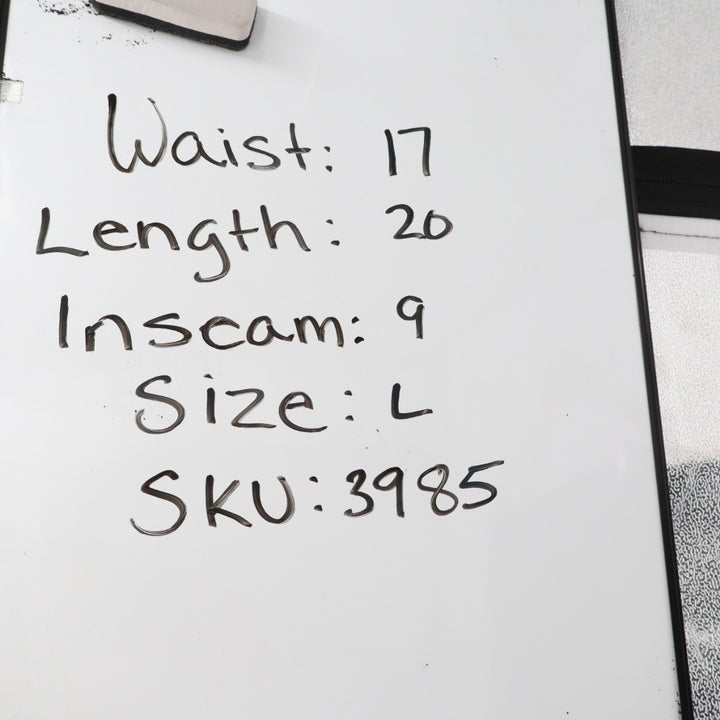 Waist: 17
Length: 20
Inseam: 9
Size: L
SKU: 3985